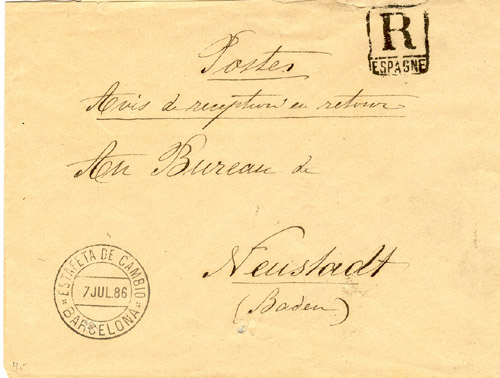 R
ESPAGNE
Postes
Avis de reception en retour
Au Bureau de
Neustadt
(Baden)
ESTAFETA DE CAMBIO
7 JUL.86
BARCELONA